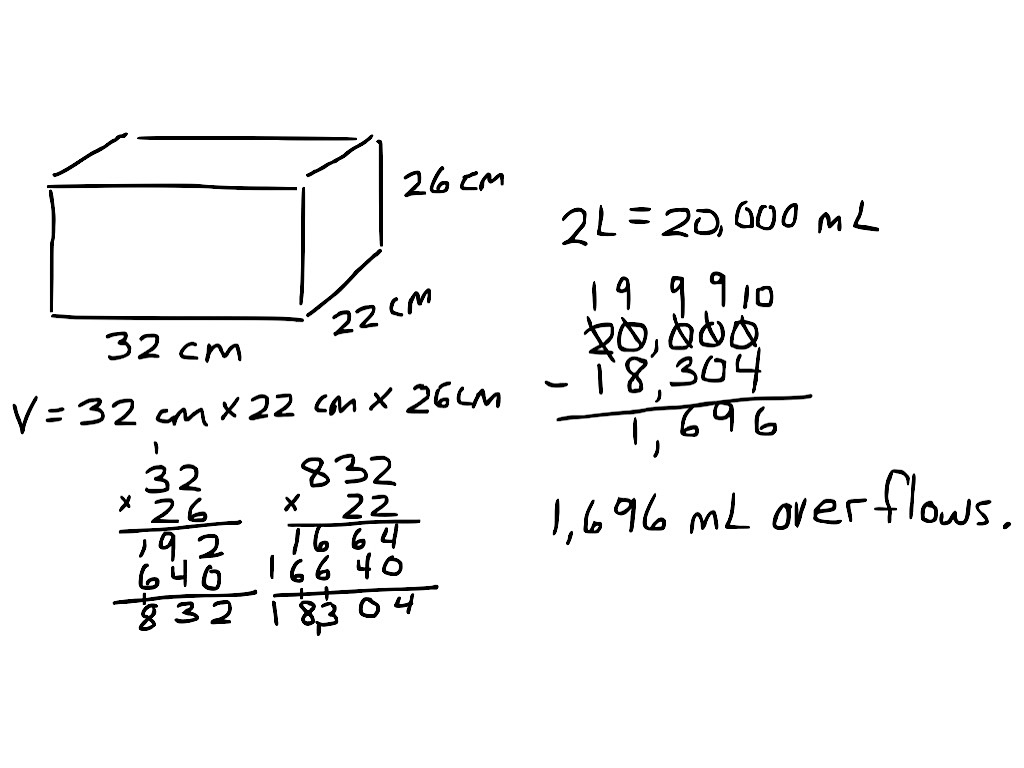 26 cm
22 cm
32 cm
V = 32 cm × 22 cm × 26 cm
1
32
× 26
192
640
1
832
832
× 22
1664
16640
1 1
18,304
2L = 20,000 mL
1 9 9 9 10
20,000
- 18,304
1,696
1,696 mL overflows.